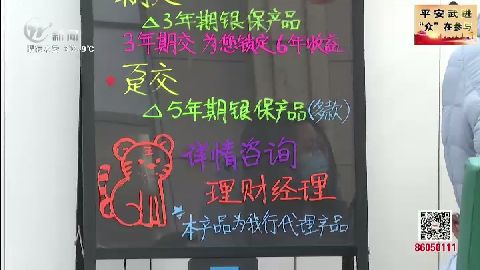 新闻
平安武进
“众”在参与
△3年期银保产品
3年期交 为您锁定6年收益
趸交
△5年期银保产品(多款)
详情咨询
理财经理
*本产品为我行代理产品
86050111